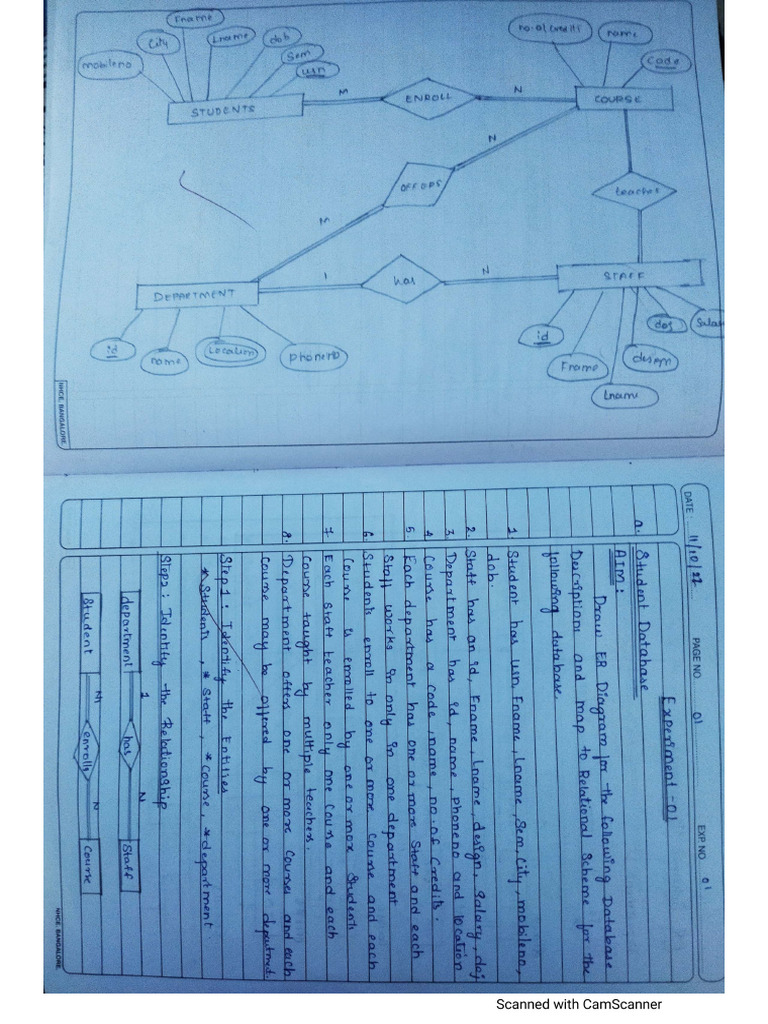 Fname
City
Lname
dob
Sem
usn
mobileno
STUDENTS
M
ENROLL
N
no.of credits
name
Code
COURSE
N
OFFERS
M
teaches
DEPARTMENT
1
has
N
STAFF
id
name
Location
phoneno
id
Fname
Lname
design
doj
Sala
NHCE, BANGALORE
DATE: 11/10/22
PAGE NO 01
EXP NO 01
Experiment-01
a. Student Database
AIM:
Draw ER Diagram for the following Database
Descriptions and map to Relational Scheme for the
following database.
1. Student has usn, Fname, Lname, Sem, City, mobileno,
dob.
2. Staff has an id, Fname, Lname, design, Salary, doj
3. Department has id, name, phoneno and location
4. Course has a code, name, no.of Credits.
5. Each department has one or more Staff and each
Staff works in only in one department
6. Students enroll to one or more Course and each
Course is enrolled by one or more Students
7. Each Staff teacher only one Course and each
Course taught by multiple teachers.
8. Department offers one or more Courses and each
Course may be offered by one or more department.
Step1: Identify the Entities
* Students, * Staff, * Course, * department
Step2: Identify the Relationship
department
1
has
N
Staff
Student
N
enrolls
N
Course
NHCE, BANGALORE
Scanned with CamScanner